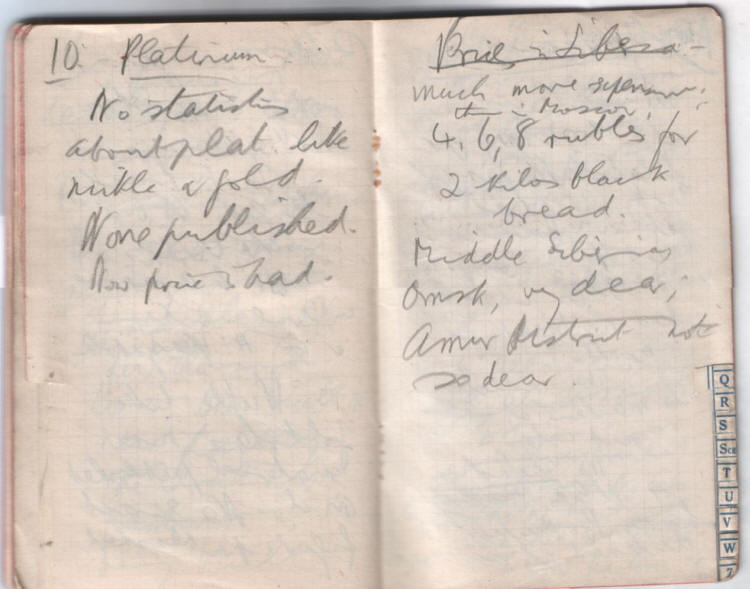 10. Platinum
No statistics
about plat. like
nickle & gold.
None published.
Now price is bad.
Prices in Siberia -
much more expensive,
than in Moscow,
4, 6, 8 rubles for
2 kilos black
bread.
Middle Siberia is
Omsk, vy dear;
Amur District not
so dear.
Q
R
S
Sch
T
U
V
W
Z